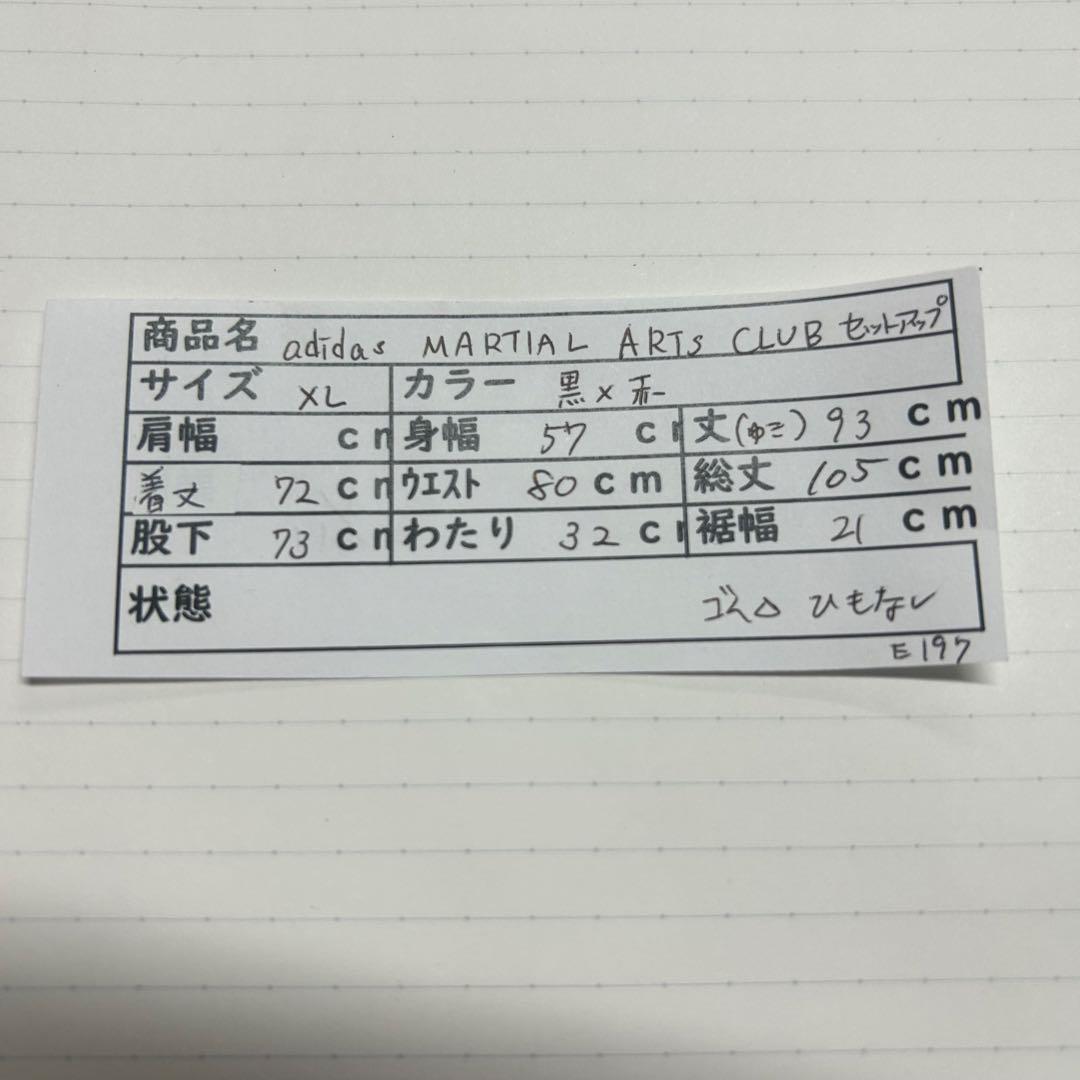 商品名 adidas MARTIAL ARTS CLUB セットアップ
サイズ XL カラー 黒×赤
肩幅 cm 身幅 57 cm 丈(ゆき) 93 cm
着丈 72 cm ウエスト 80 cm 総丈 105 cm
股下 73 cm わたり 32 cm 裾幅 21 cm
状態 ゴム△ ひもなし
E197